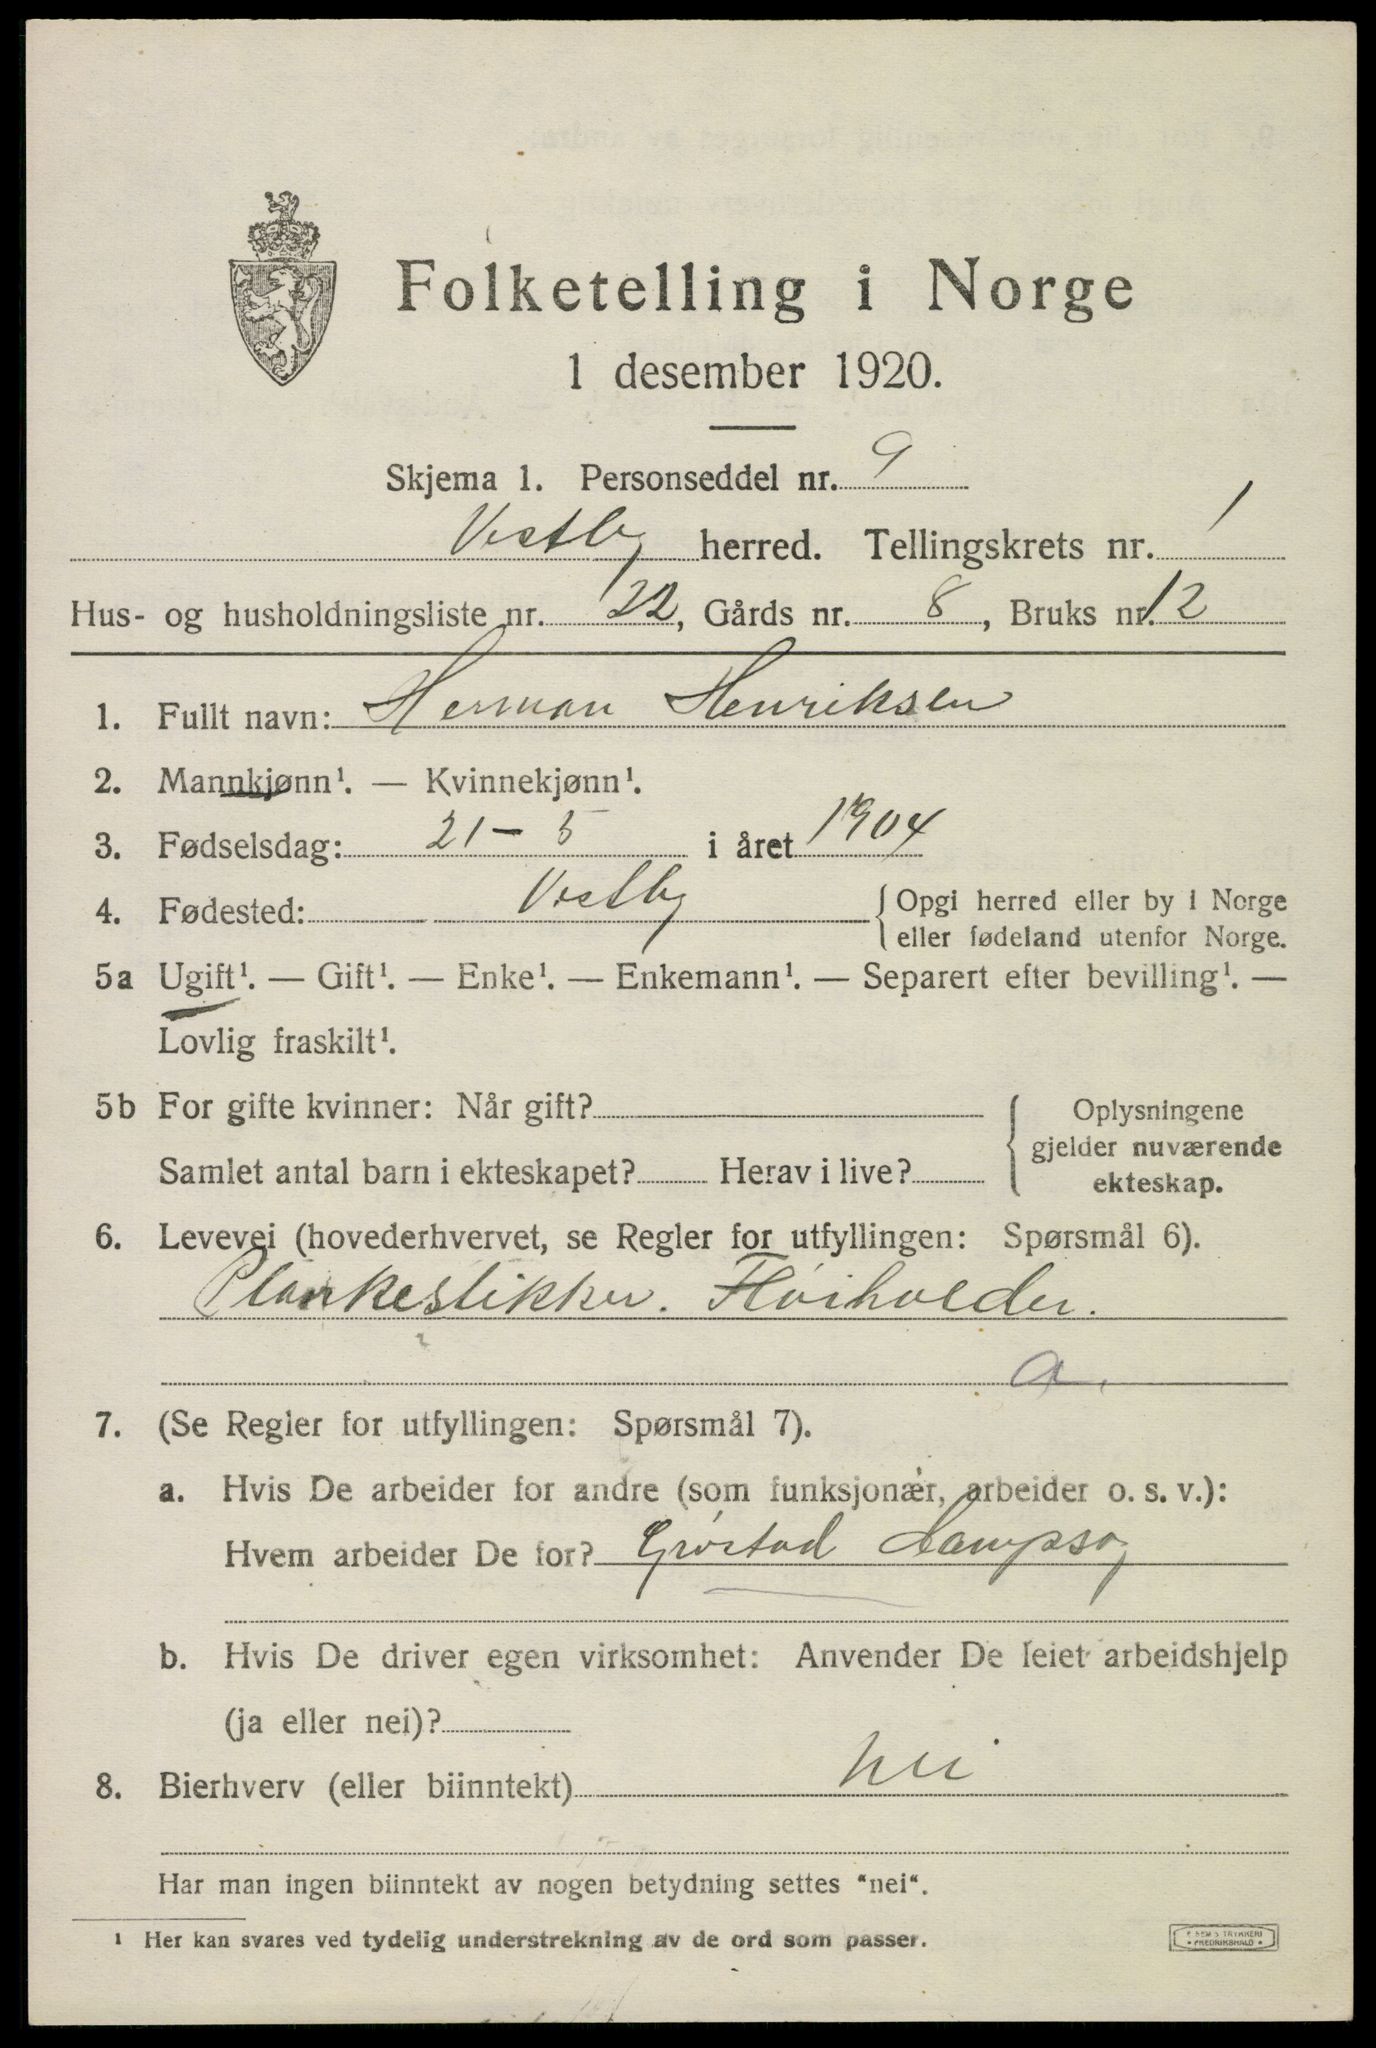 Folketelling i Norge
1 desember 1920.
Skjema 1. Personseddel nr. 9
Vestby herred. Tellingskrets nr. 1
Hus- og husholdningsliste nr. 22, Gårds nr. 8, Bruks nr. 12
1. Fullt navn: Herman Henriksen
2. Mannkjønn¹. — Kvinnekjønn¹.
3. Fødselsdag: 21 - 5 i året 1904
4. Fødested: Vestby {Opgi herred eller by i Norge
eller fødeland utenfor Norge.
5a Ugift¹. — Gift¹. — Enke¹. — Enkemann¹. — Separert efter bevilling¹. —
Lovlig fraskilt¹.
5b For gifte kvinner: Når gift? { Oplysningene
gjelder nuværende
Samlet antal barn i ekteskapet? Herav i live?
ekteskap.
6. Levevei (hovederhvervet, se Regler for utfyllingen: Spørsmål 6).
Plankeslikker. Fløiholder.
a.
7. (Se Regler for utfyllingen: Spørsmål 7).
a. Hvis De arbeider for andre (som funksjonær, arbeider o. s. v.):
Hvem arbeider De for? Grøstad Dampsag
b. Hvis De driver egen virksomhet: Anvender De leiet arbeidshjelp
(ja eller nei)?
8. Bierhverv (eller biinntekt) nei
Har man ingen biinntekt av nogen betydning settes "nei".
¹ Her kan svares ved tydelig understrekning av de ord som passer.
E. SEM'S TRYKKERI
FREDRIKSHALD